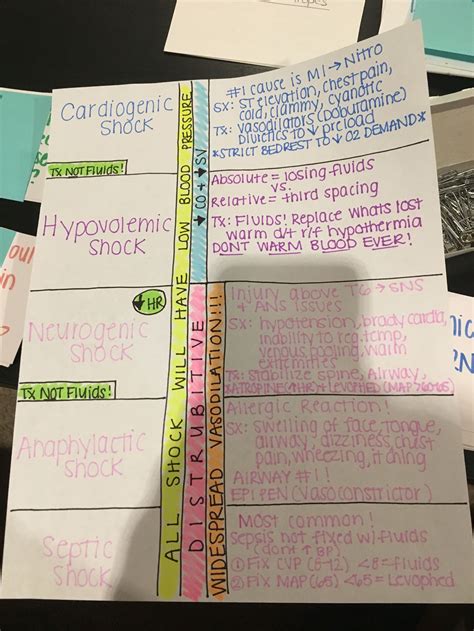 Cardiogenic
Shock
#1 cause is MI → Nitro
SX: ST elevation, chest pain,
cold, clammy, cyanotic
TX: vasodilators (Dobutamine)
Diuretics to ↓ preload
*STRICT BEDREST TO ↓ O2 DEMAND*
TX NOT FLUIDS!
Hypovolemic
Shock
Absolute = losing fluids
vs.
Relative = third spacing
TX: FLUIDS! Replace whats lost
warm d/t r/f hypothermia
DONT WARM BLOOD EVER!
↓ HR
Neurogenic
Shock
Injury above T6 → SNS
+ ANS issues
SX: hypotension, bradycardia,
inability to reg. temp,
venous pooling, warm
extremities
TX: Stabilize spine, Airway,
ATROPINE (↑HR) + LEVOPHED (MAP >60-65)
TX NOT FLUIDS!
Anaphylactic
Shock
Allergic Reaction!
SX: swelling of face, tongue,
airway, dizziness, chest
pain, wheezing, itching
AIRWAY #1!!
EPI PEN (Vasoconstrictor)
Septic
Shock
Most common!
Sepsis not fixed w/ fluids
(dont ↑ BP)
① Fix CVP (8-12) <8 = fluids
② Fix MAP (65) <65 = Levophed
ALL SHOCK WILL HAVE LOW BLOOD PRESSURE
↓ CO + ↓ SV
DISTRUBITIVE
WIDESPREAD VASODILATION!!!